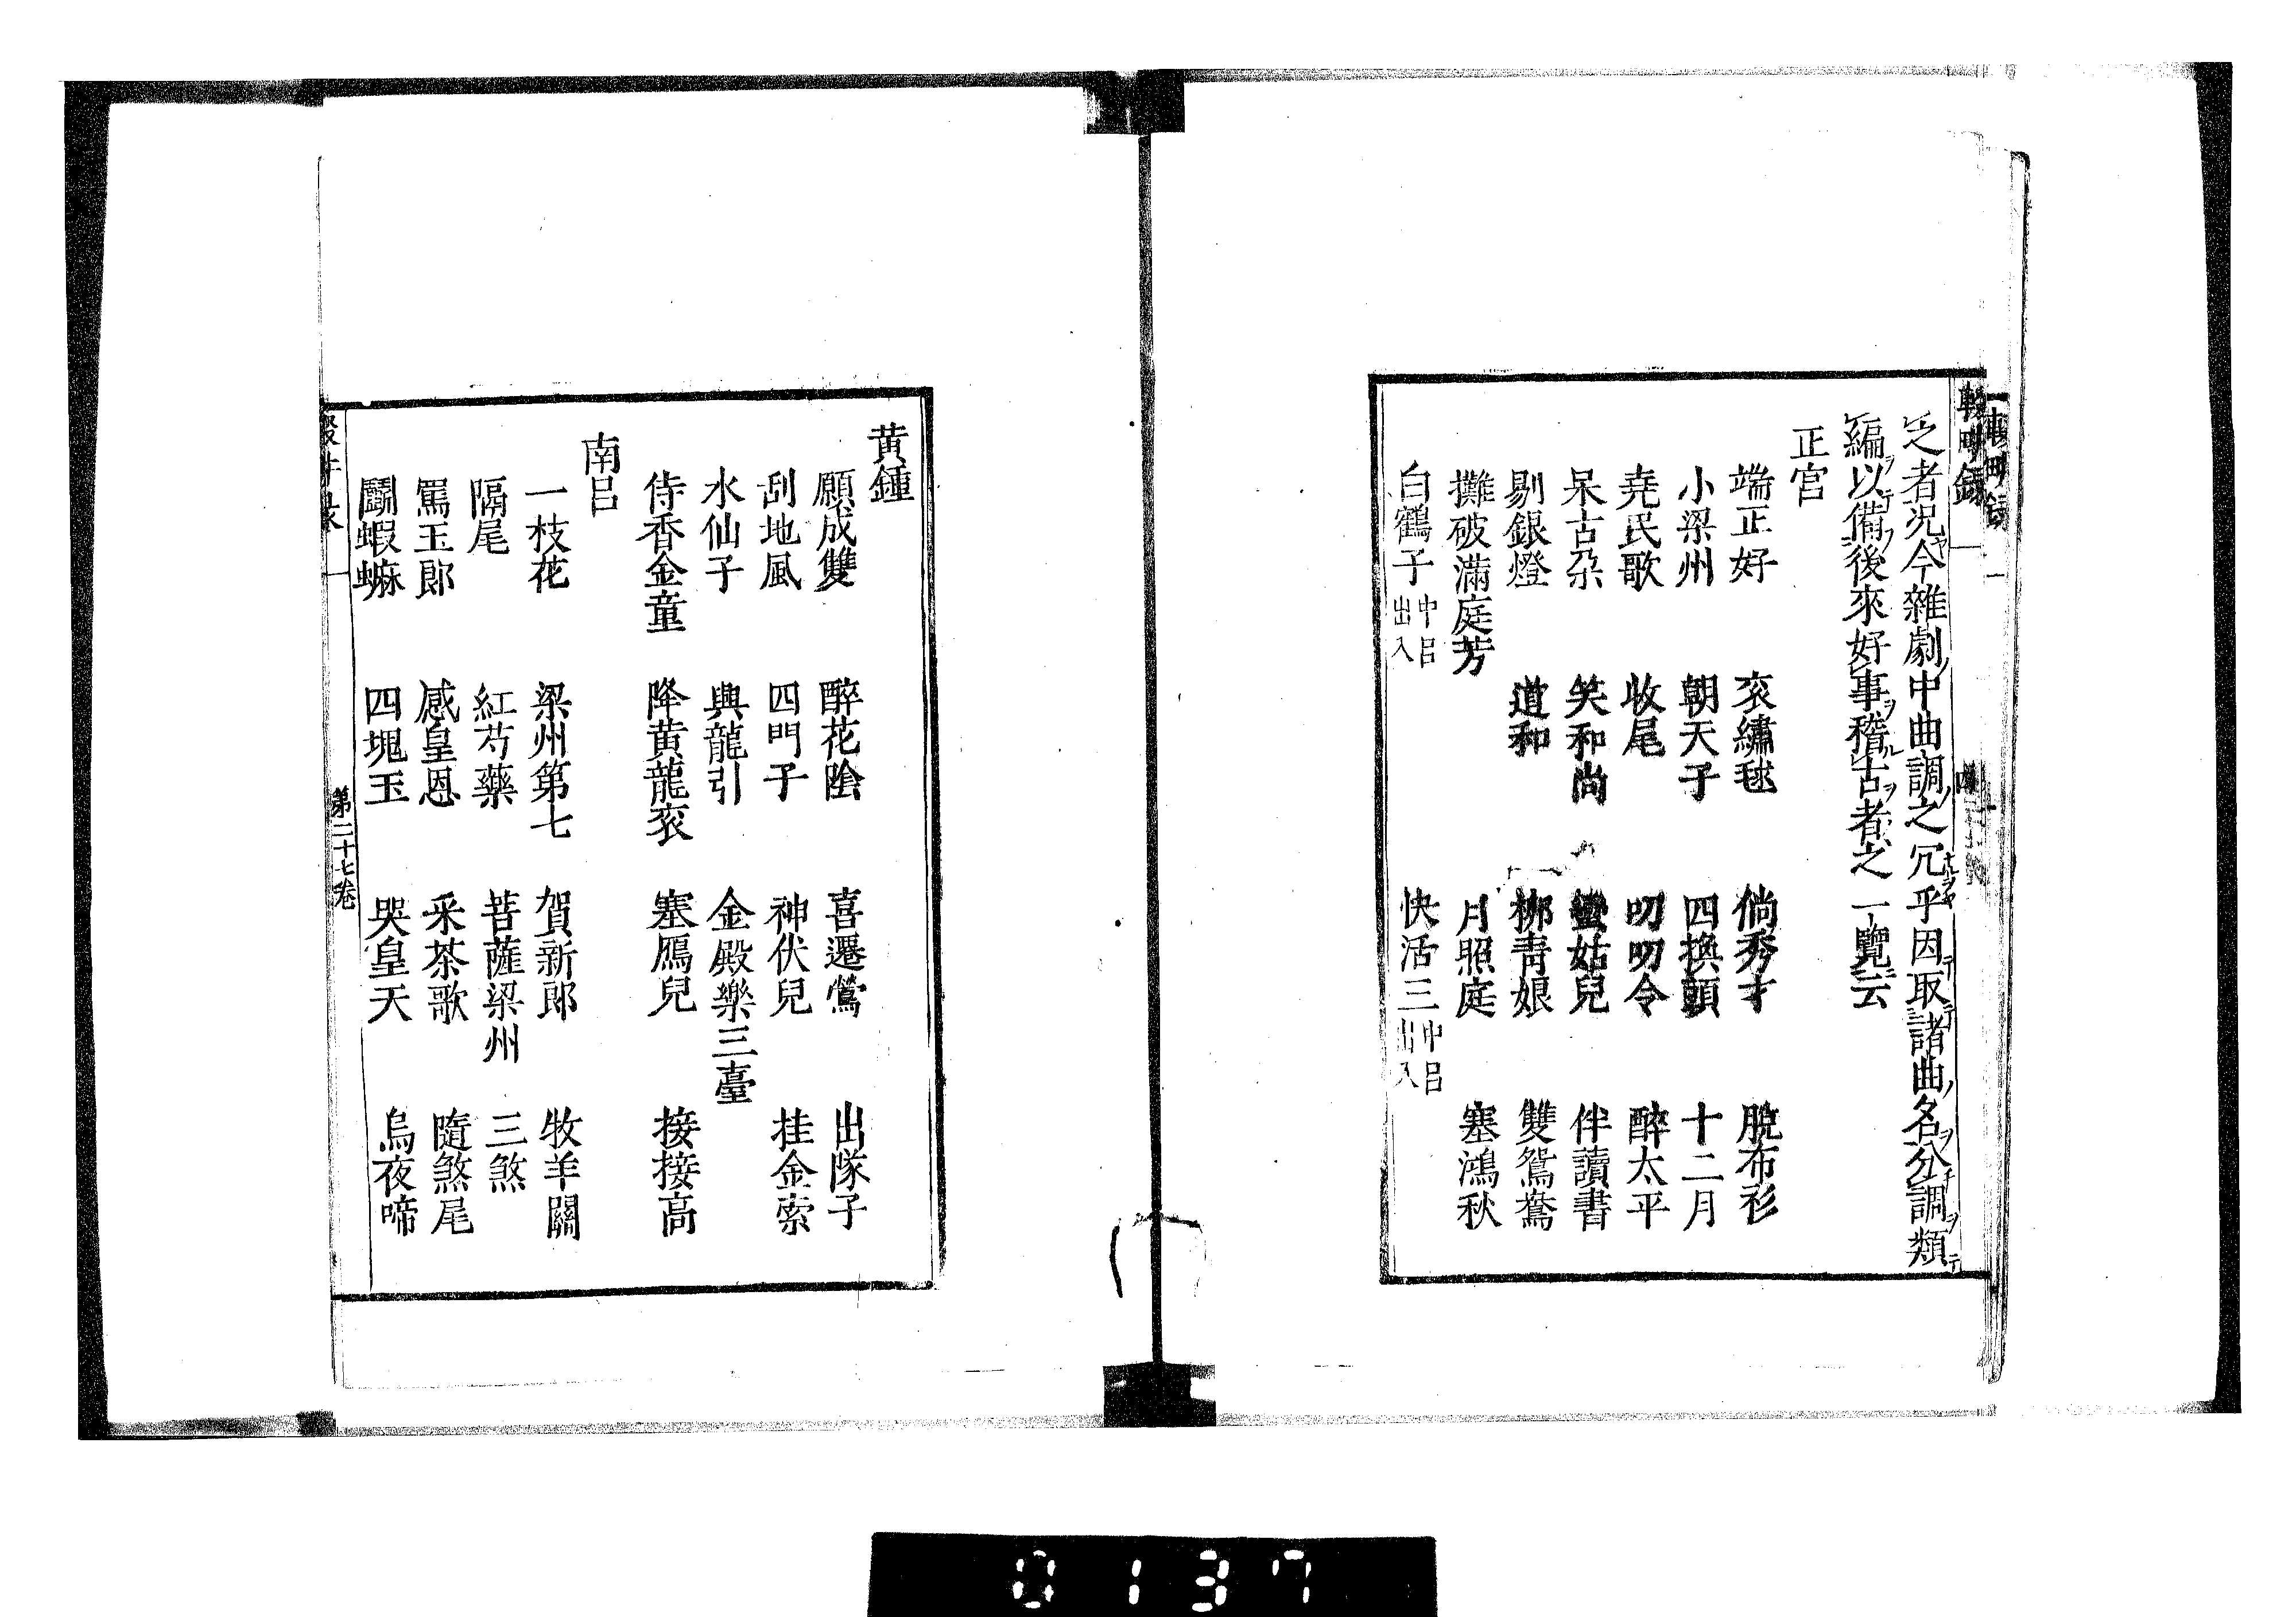 輟耕錄
之者况今雜劇中曲調之冗乎因取諸曲名分調類
編以備後來好事稽古者之一覽云
正宮
端正好 衮繡毬 倘秀才 脫布衫
小梁州 朝天子 四換頭 十二月
堯民歌 收尾 叨叨令 醉太平
呆古朶 笑和尚 蠻姑兒 伴讀書
剔銀燈 道和 柳靑娘 雙鴛鴦
攤破滿庭芳 月照庭 塞鴻秋
白鶴子中呂出入 快活三中呂出入
黃鍾
願成雙 醉花陰 喜遷鶯 出隊子
刮地風 四門子 神伏兒 挂金索
水仙子 興龍引 金殿樂三臺
侍香金童 降黃龍衮 塞鴈兒 接接高
南呂
一枝花 梁州第七 賀新郎 牧羊關
隔尾 紅芍藥 菩薩梁州 三煞
罵玉郎 感皇恩 采茶歌 隨煞尾
鬭蝦蟆 四塊玉 哭皇天 烏夜啼
第二十七卷
0137